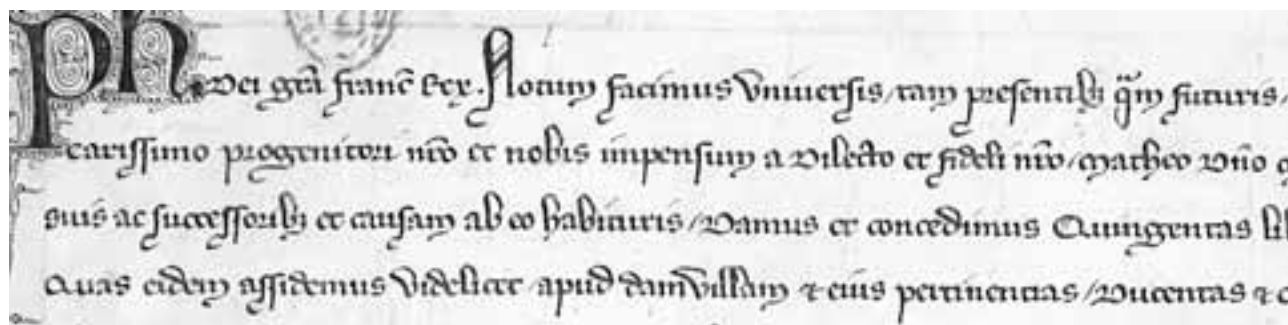 Ph. Dei grã Franc̃ Rex. Notum facimus Universis, tam presentib; q̃m futuris,
carissimo progenitori nr̃o et nobis impensum a Dilecto et fideli nr̃o, Matheo Dño
suis ac successorib; et causam ab eo habituris, Damus et concedimus Quingentas li
Quas eidem assidemus Videlicet apud dam̃Villam ⁊ eius pertinencias, Ducentas ⁊